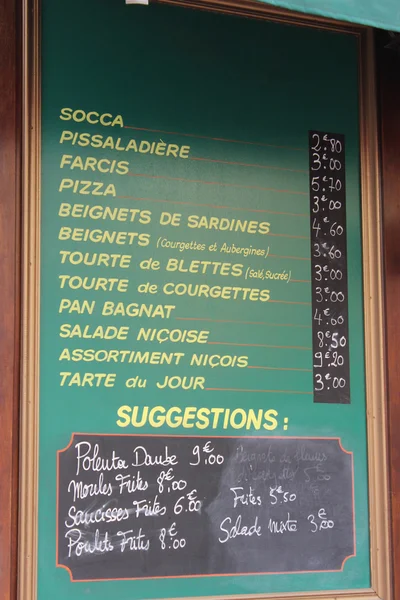 SOCCA 2€80
PISSALADIÈRE 3€00
FARCIS 5€70
PIZZA 3€00
BEIGNETS DE SARDINES 4€60
BEIGNETS (Courgettes et Aubergines) 3€60
TOURTE de BLETTES (Salé, Sucrée) 3€00
TOURTE de COURGETTES 3€00
PAN BAGNAT 4€00
SALADE NIÇOISE 8€50
ASSORTIMENT NIÇOIS 9€20
TARTE du JOUR 3€00
SUGGESTIONS :
Polenta Daube 9€00
Moules Frites 8€00
Saucisses Frites 6€00
Poulets Frits 8€00
Frites 5€50
Salade mixte 3€00